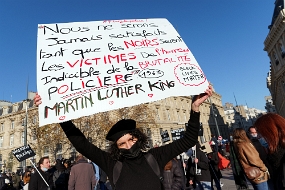 Nous ne serons
Jamais satisfaits
tant que les NOIRS seront
Les VICTIMES de l'horreur
Indicible de la BRUTALITÉ
POLICIÈRE 1963
MARTIN LUTHER KING
BLACK
LIVES
MATTER
BLACK